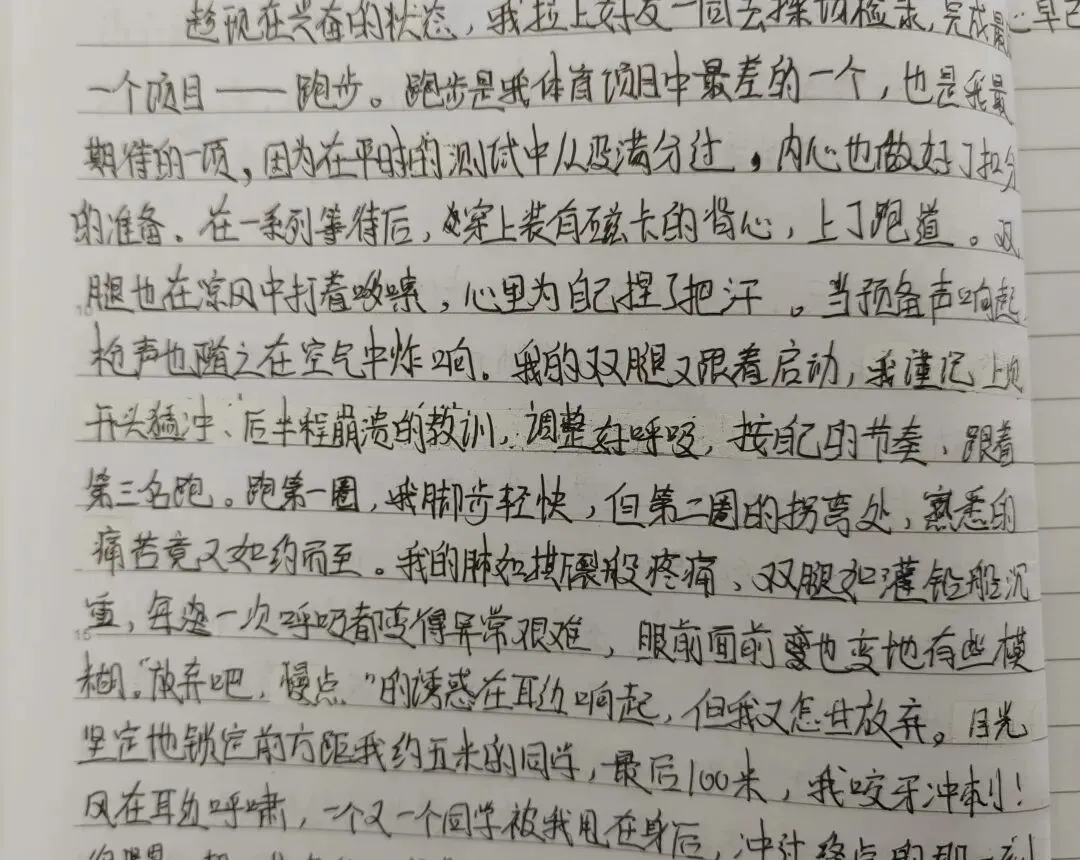 趁现在兴奋的状态，我拉上好友一同去操场检录，完成最
一个项目——跑步。跑步是我体育项目中最差的一个，也是我最
期待的一项，因为在平时的测试中从没满分过，内心也做好了扣分
的准备。在一系列等待后，穿上装有磁卡的背心，上了跑道。双
腿也在凉风中打着哆嗦，心里为自己捏了把汗。当预备声响起
枪声也随之在空气中炸响。我的双腿又跟着启动，我谨记上跑
开头猛冲、后半程崩溃的教训，调整好呼吸，按自己的节奏，跟着
第三名跑。跑第一圈，我脚步轻快，但第二圈的拐弯处，熟悉的
痛苦竟又如约而至。我的肺如撕裂般疼痛、双腿如灌铅般沉
重，每次一次呼吸都变得异常艰难，眼前面前也变地有些模
糊。“放弃吧，慢点”的诱惑在耳边响起，但我又怎甘放弃。目光
坚定地锁定前方距我约五米的同学，最后100米，我咬牙冲刺！
风在耳边呼啸，一个又一个同学被我甩在身后，冲过终点的那一刻